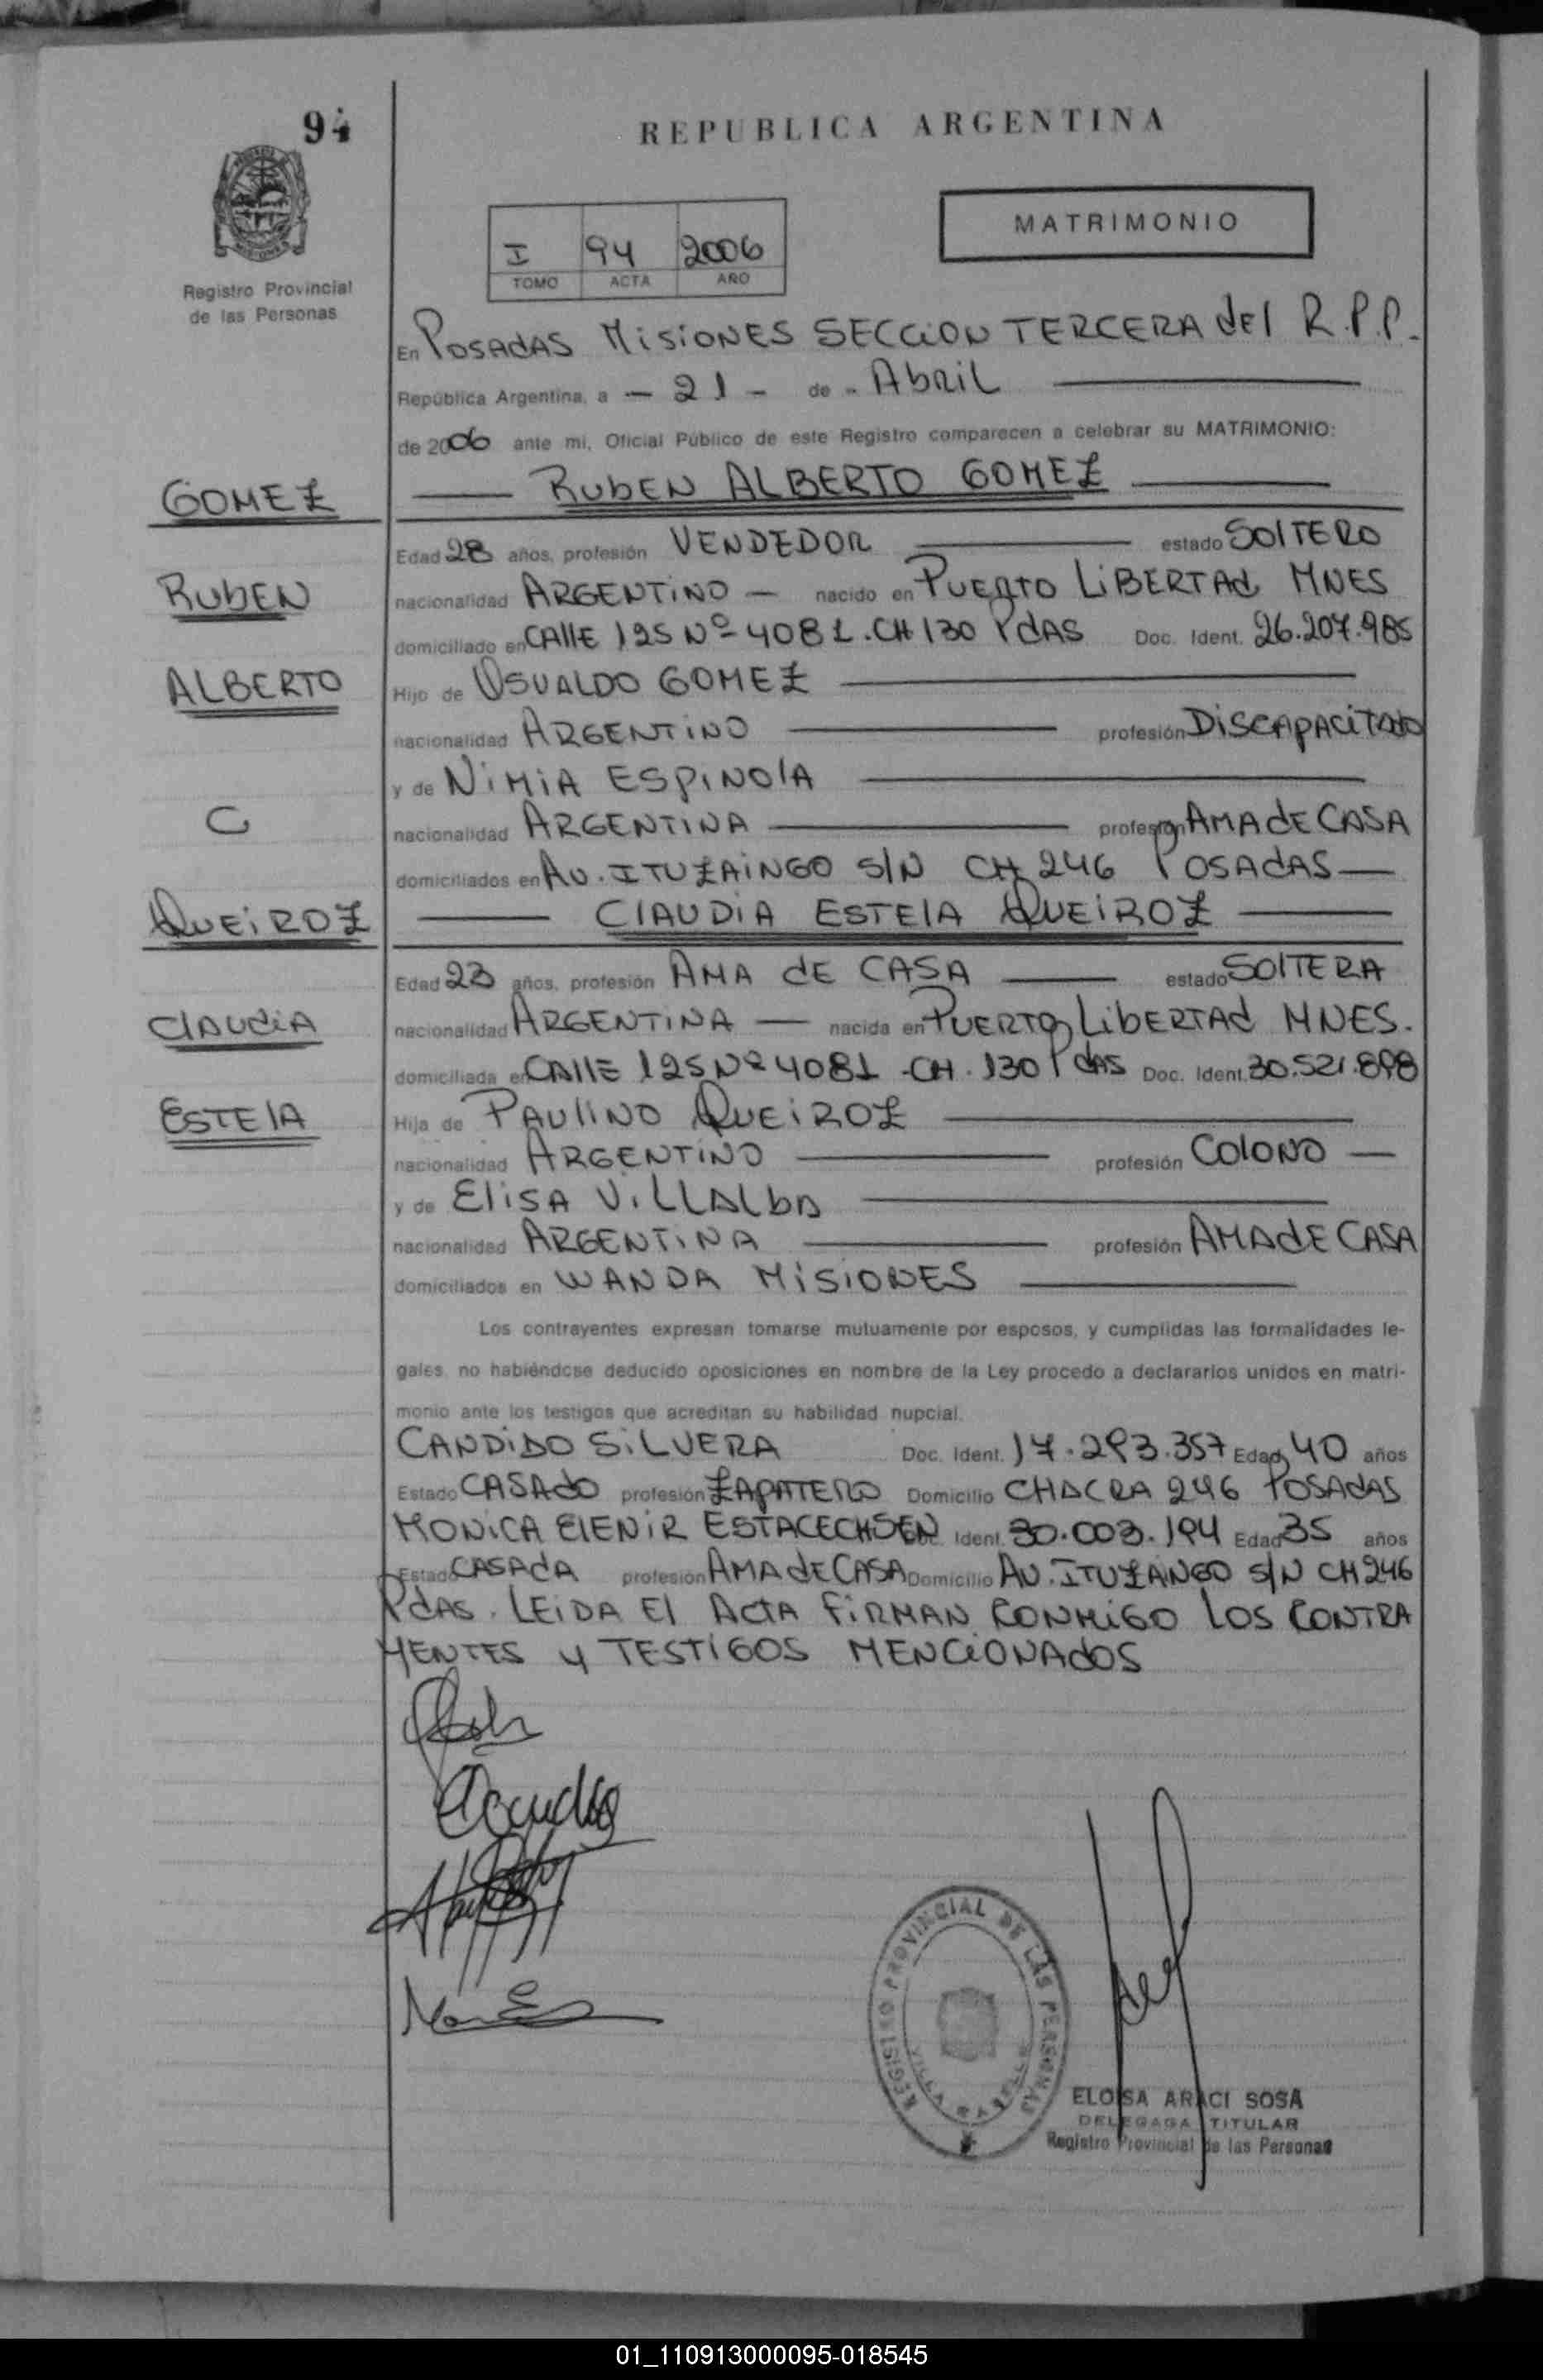 94
REPUBLICA ARGENTINA
MATRIMONIO
I 94 2006
TOMO ACTA AÑO
Registro Provincial
de las Personas
En POSADAS MISIONES SECCION TERCERA dEl R.P.P.
República Argentina, a - 21 - de - AbRIL
de 2006 ante mi, Oficial Público de este Registro comparecen a celebrar su MATRIMONIO:
RUbEN ALBERTO GOMEZ
GOMEZ
Edad 28 años, profesión VENDEDOR estado SOlTERO
RUbEN
nacionalidad ARGENTINO - nacido en PUERTO LIBERTAd MNES
domiciliado en CAllE 125 Nº 4081. CH 130 PdAS Doc. Ident. 26.207.985
ALBERTO
Hijo de OSUALDO GOMEZ
nacionalidad ARGENTINO profesión DISCAPACITAdO
y de NIMIA ESPINOlA
C
nacionalidad ARGENTINA profesión AMA dE CASA
domiciliados en AV. ITUZAINGO S/N CH 246 POSADAS
QUEIROZ
ClAUDIA ESTElA QUEIROZ
Edad 23 años, profesión AMA dE CASA estado SOlTERA
ClAUdIA
nacionalidad ARGENTINA - nacida en PUERTO LIbERTAd MNES.
domiciliada en CAllE 125 Nº 4081 - CH. 130 PdAS Doc. Ident. 30.521.898
ESTElA
Hija de PAUlINO QUEIROZ
nacionalidad ARGENTINO profesión COlONO
y de ElISA VILLALbA
nacionalidad ARGENTINA profesión AMA dE CASA
domiciliados en WANDA MISIONES
Los contrayentes expresan tomarse mutuamente por esposos, y cumplidas las formalidades le-
gales no habiéndose deducido oposiciones en nombre de la Ley procedo a declararlos unidos en matri-
monio ante los testigos que acreditan su habilidad nupcial.
CANDIDO SILVERA Doc. Ident. 17.293.357 Edad 40 años
Estado CASAdO profesión ZAPATERO Domicilio CHACRA 246 POSAdAS
MONICA ElENIR ESTACECHSEN Doc. Ident. 30.003.194 Edad 35 años
Estado CASAdA profesión AMA dE CASA Domicilio AV. ITUZANGO S/N CH 246
PdAS. LEIDA El ACTA FIRMAN CONMIGO LOS CONTRA
YENTES y TESTIGOS MENCIONAdOS
REGISTRO PROVINCIAL DE LAS PERSONAS
ELOISA ARACI SOSA
DELEGADA TITULAR
Registro Provincial de las Personas
01_110913000095-018545